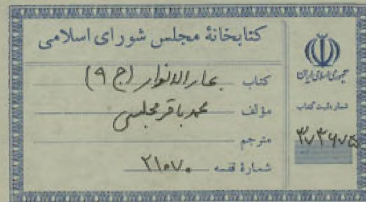 کتابخانهٔ مجلس شورای اسلامی
کتاب بحارالانوار (ج ۹)
مؤلف محمدباقر مجلسی
مترجم
شمارهٔ قفسه ۲۱۰۷۰
جمهوری اسلامی ایران
شماره ثبت کتاب